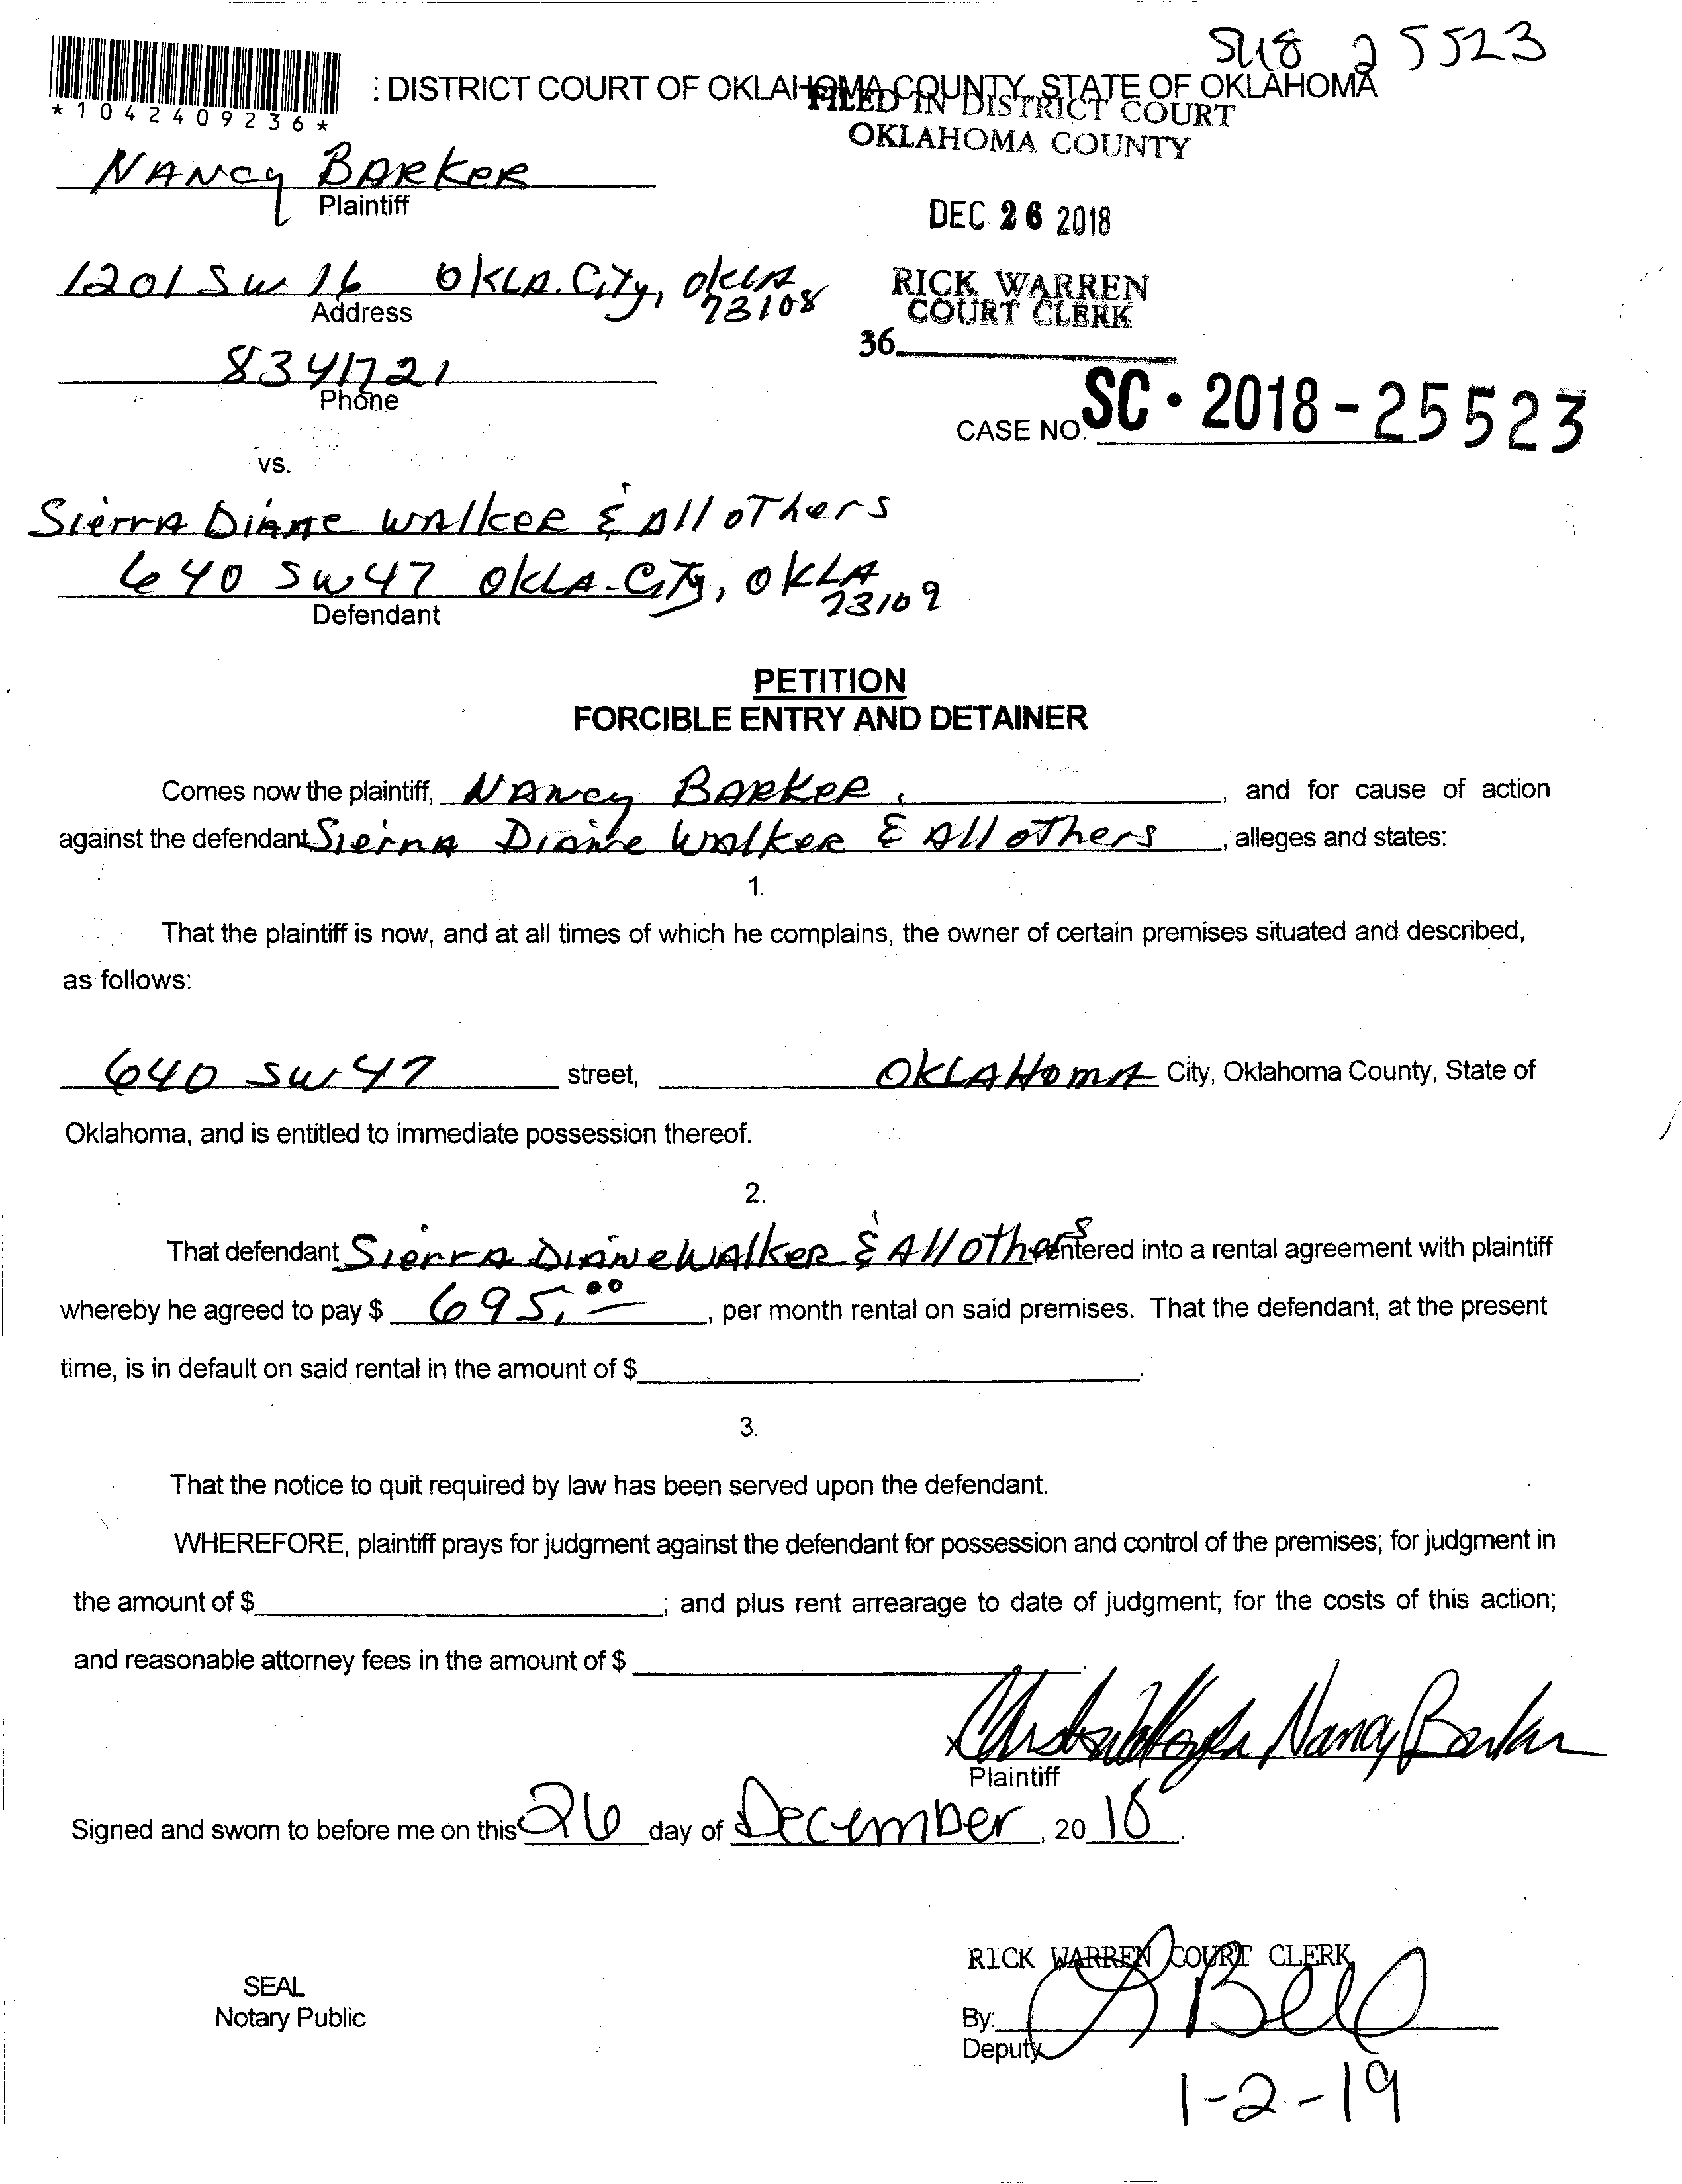 SC18 25523
*1042409236*
: DISTRICT COURT OF OKLAHOMA COUNTY, STATE OF OKLAHOMA
FILED IN DISTRICT COURT
OKLAHOMA COUNTY
NANCY BARKER
Plaintiff
DEC 26 2018
1201 SW 16 OKLA. City, OKLA 73108
Address
RICK WARREN
COURT CLERK
36
8341721
Phone
CASE NO. SC - 2018 - 25523
vs.
SierrA DiAne WAlkeR & All oThers
640 SW 47 OKLA. CiTy, OKLA 73109
Defendant
PETITION
FORCIBLE ENTRY AND DETAINER
Comes now the plaintiff, NANcy BARKeR, and for cause of action
against the defendant SierrA DiAne WAlkeR & All oThers, alleges and states:
1.
That the plaintiff is now, and at all times of which he complains, the owner of certain premises situated and described,
as follows:
640 SW 47 street, OKLAHomA City, Oklahoma County, State of
Oklahoma, and is entitled to immediate possession thereof.
2.
That defendant SierrA DiANe WAlkeR & All Others entered into a rental agreement with plaintiff
whereby he agreed to pay $ 695.00, per month rental on said premises. That the defendant, at the present
time, is in default on said rental in the amount of $.
3.
That the notice to quit required by law has been served upon the defendant.
WHEREFORE, plaintiff prays for judgment against the defendant for possession and control of the premises; for judgment in
the amount of $; and plus rent arrearage to date of judgment; for the costs of this action;
and reasonable attorney fees in the amount of $
x Nancy Barker
Plaintiff
Signed and sworn to before me on this 26 day of December, 20 18.
RICK WARREN COURT CLERK
SEAL
Notary Public
By: Bell
Deputy
1-2-19